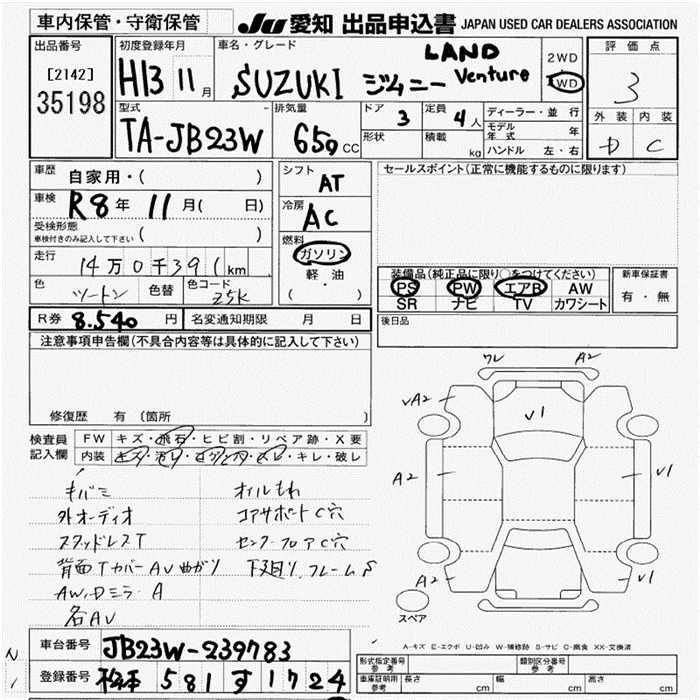 車内保管・守衛保管
JU 愛知 出品申込書 JAPAN USED CAR DEALERS ASSOCIATION
出品番号
[2142]
35198
初度登録年月
H13 11月
車名・グレード
SUZUKI ジムニー LAND Venture
2WD
4WD
評価点
3
外装 内装
D C
型式
TA-JB23W
排気量
650 CC
ドア 3
定員 4人
形状
積載 kg
ディーラー・並行
モデル年式 年
ハンドル 左・右
車歴 自家用・( )
車検 R8年 11月( 日)
受検形態
車検付きのみ記入して下さい ( )
走行
14万0千391km
色 ツートン 色替 色コード Z5K
シフト AT
冷房 AC
燃料
ガソリン
軽油
( ・ )
セールスポイント(正常に機能するものに限ります)
装備品(純正品に限り○をつけてください)
PS PW エアB AW
SR ナビ TV カワシート
新車保証書
有・無
R券 8.540 円 名変通知期限 月 日
後日品
注意事項申告欄(不具合内容等は具体的に記入して下さい)
修復歴 有 〔箇所
検査員記入欄
FW キズ・飛石・ヒビ割・リペア跡・X要
内装 キズ・汚レ・コゲ穴・スレ・キレ・破レ
キバミ オイルもれ
外オーディオ コアサポートC穴
スタッドレスT センターフロアC穴
背面TカバーAU曲がり 下廻り、フレームS
AW、Dミラ-A
各AU
ワレ A2
√A2 √1
A2 √1
A2 √1
スペア
A-キズ E-エクボ U-凹み W-補修跡 S-サビ C-腐食 XX-交換済
車台番号 JB23W-239783
登録番号 松本 581 す 1724
形式指定番号
参考
類別区分番号
参考
車庫証明用
参考
長さ cm 幅 cm 高さ cm